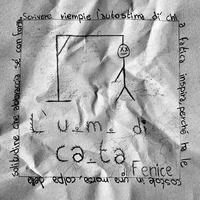 Scrivere riempie l'autostima di chi
a fatica impara, perché ha le
costole in una morsa, colpa della
solitudine che abbraccia sé con
L'u_m_ di
ca_ta
Fenice